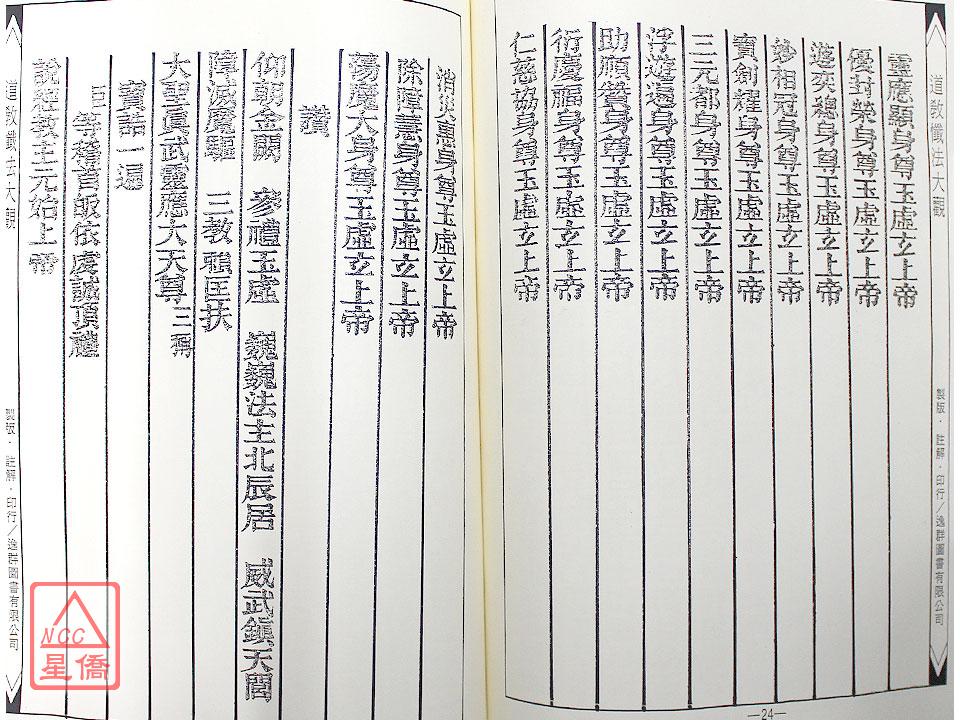 道教懺法大觀
製版．註解．印行／逸群圖書有限公司
靈應顯身尊玉虛玄上帝
優封榮身尊玉虛玄上帝
遊奕總身尊玉虛玄上帝
妙相冠身尊玉虛玄上帝
寶劍耀身尊玉虛玄上帝
三元都身尊玉虛玄上帝
浮遊遠身尊玉虛玄上帝
助順贊身尊玉虛玄上帝
衍慶福身尊玉虛玄上帝
仁慈協身尊玉虛玄上帝
—24—
消災惠身尊玉虛玄上帝
除障慧身尊玉虛玄上帝
蕩魔大身尊玉虛玄上帝
讚
仰朝金闕 參禮玉虛 巍巍法主北辰居 威武鎮天閭
障滅魔驅 三教賴匡扶
大聖真武靈應大天尊三稱
寶誥一遍
臣 等稽首皈依虔誠頂禮
說經教主元始上帝
道教懺法大觀
製版．註解．印行／逸群圖書有限公司
NCC
星僑